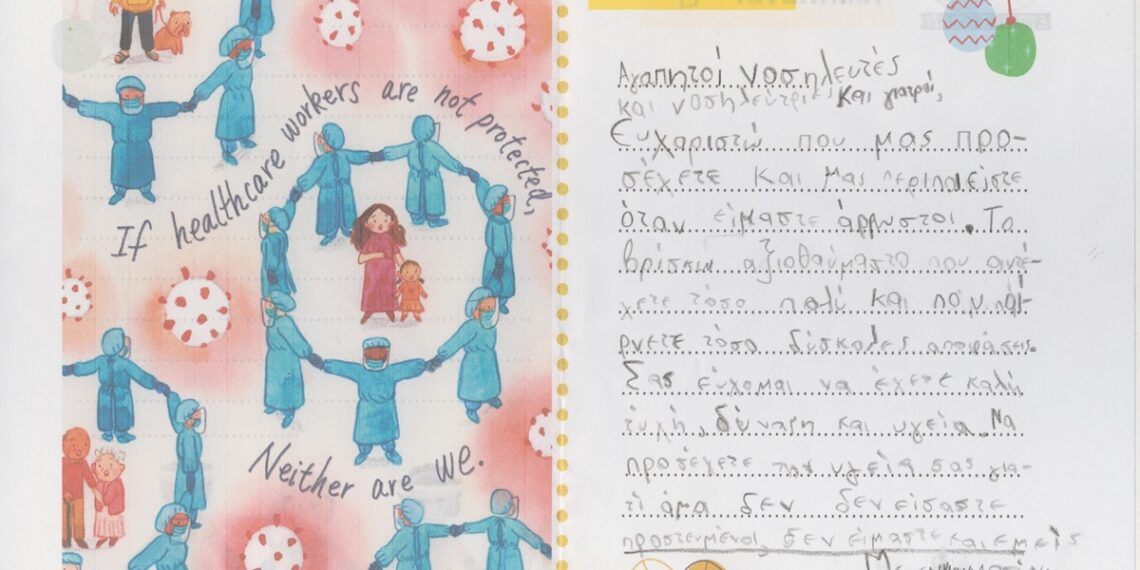 If healthcare workers are not protected,
Neither are we.
Αγαπητοί νοσηλευτές
και νοσηλεύτριες και γιατροί,
Ευχαριστώ που μας προ-
σέχετε και μας περιποιείστε
όταν είμαστε άρρωστοι. Το
βρίσκω αξιοθαύμαστο που αντέ-
χετε τόσο πολύ και που παί-
ρνετε τόσο δύσκολες αποφάσεις.
Σας εύχομαι να έχετε καλή
τύχη, δύναμη και υγεία. Να
προσέχετε την υγεία σας για-
τί άμα δεν δεν είσαστε
προστευμένοι, δεν είμαστε και εμείς
Με